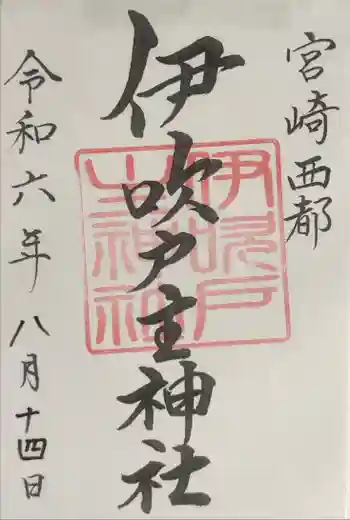 宮崎西都
伊吹戸主神社
伊吹戸主神社
令和六年 八月十四日